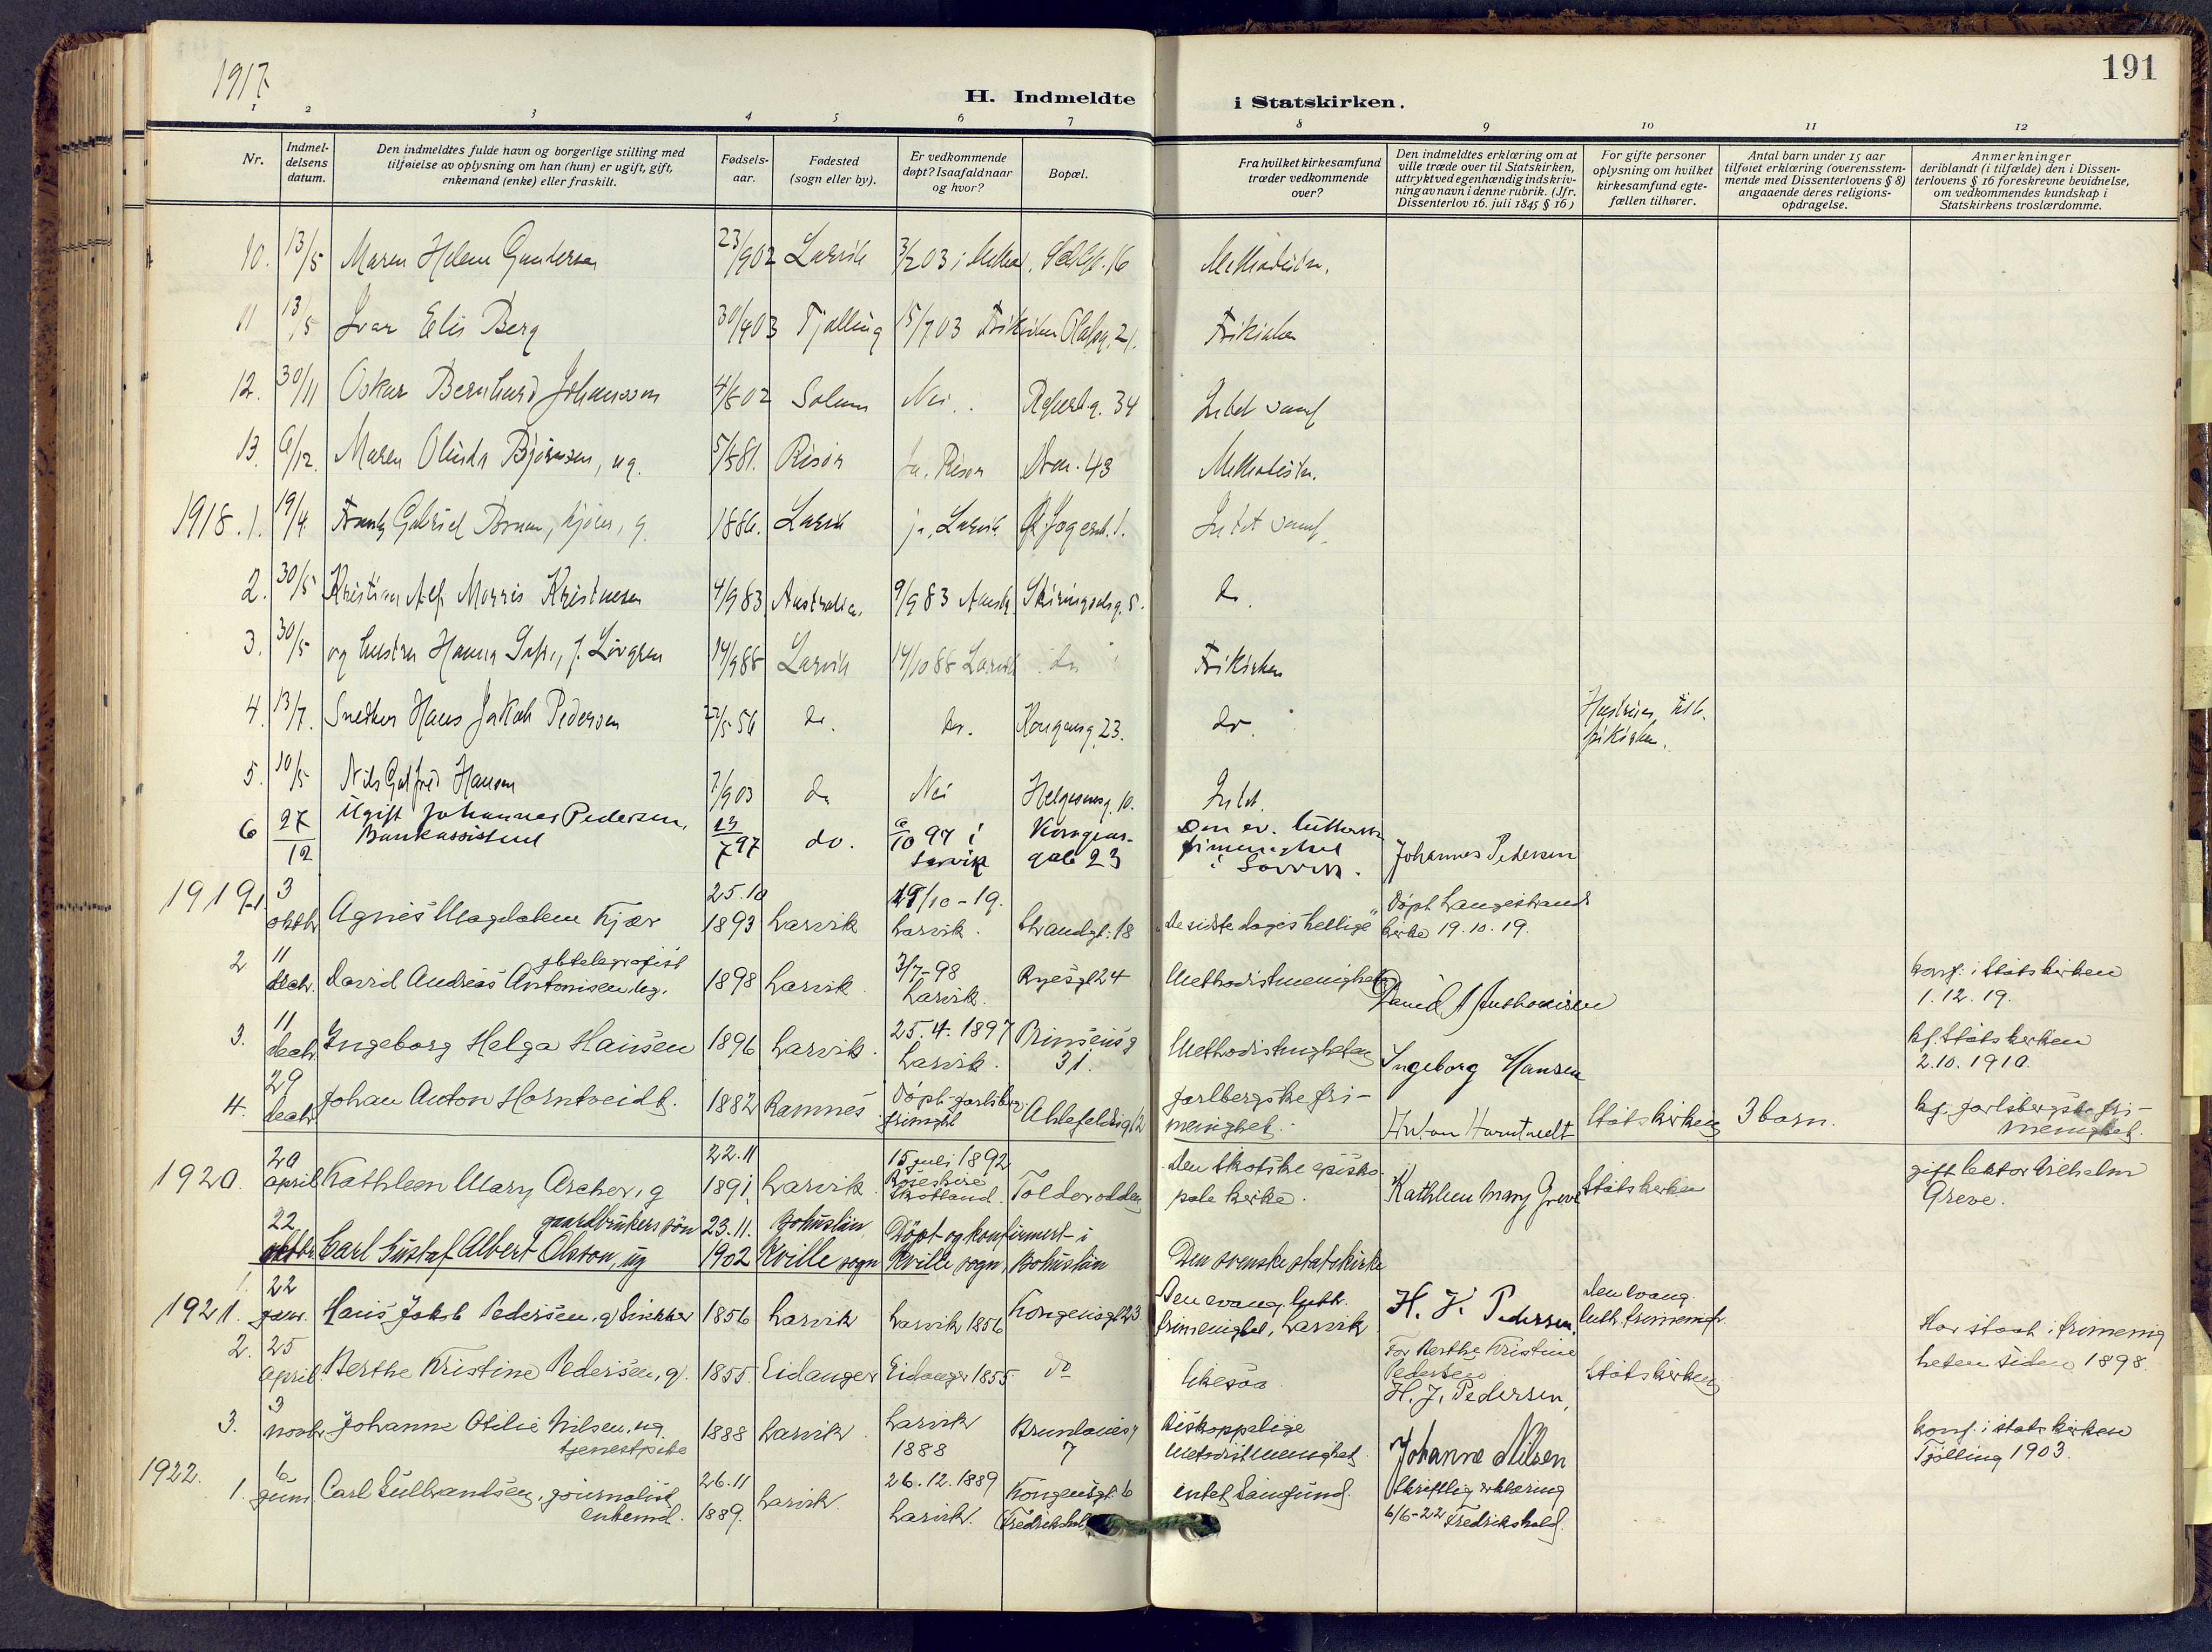 1917
191
H. Indmeldte i Statskirken.
1 2 3 4 5 6 7 8 9 10 11 12
Nr.
Indmel-
delsens
datum.
Den indmeldtes fulde navn og borgerlige stilling med
tilføielse av oplysning om han (hun) er ugift, gift,
enkemand (enke) eller fraskilt.
Fødsels-
aar.
Fødested
(sogn eller by).
Er vedkommende
døpt? Isaafald naar
og hvor?
Bopæl.
Fra hvilket kirkesamfund
træder vedkommende
over?
Den indmeldtes erklæring om at
ville træde over til Statskirken,
uttrykt ved egenhændig indskriv-
ning av navn i denne rubrik. (Jfr.
Dissenterlov 16. juli 1845 § 16)
For gifte personer
oplysning om hvilket
kirkesamfund egte-
fællen tilhører.
Antal barn under 15 aar
tilføiet erklæring (overensstem-
mende med Dissenterlovens § 8)
angaaende deres religions-
opdragelse.
Anmerkninger
deriblandt (i tilfælde) den i Dissen-
terlovens § 16 foreskrevne bevidnelse,
om vedkommendes kundskap i
Statskirkens troslærdomme.
10. 13/5 Maren Helene Gundersen 23/902 Larvik 3/203 i 16 Methodistm.
11 13/5 Ivar Elis Berg 30/403 Tjølling 15/703 Frikirken Olafsg. 21. Frikirken
12. 30/11 Oskar Bernhard Johansson 4/802 Solum Nei. 34 Intet samf
13. 6/12. Maren Olinda Bjørnsen, ug. 5/581. Risør ja, Risør 43 Methodistm.
1918. 1. 19/4 Frantz Gabriel g. 1886. Larvik ja, Larvik 1. Intet samf.
2. 30/5 Kristian Alf Morris Kristensen 4/983 Australia. 9/983 Skiringsalsg. 8. do.
3. 30/5 og hustru Hanna f. Løvgren 14/988 Larvik 14/1088 Larvik do Frikirken
4. 13/7. Snedker Hans Jakob Pedersen 22/5 56 do. do. Kongensg. 23. do. Hustruen tilh.
frikirken.
5. 10/5 Nils Gotfred Hansen 7/903 do Nei Helgesensg. 10. Intet.
6 27/12 Ugift Johannes Pedersen,
Bankassistent 13/7 97 do. 6/10 97 i
Larvik Kongens-
gate 23 Den ev. lutherske
frimenighet
i Larvik. Johannes Pedersen
1919. 1 3
oktbr Agnes Magdalene Kjær 25.10
1893 Larvik 19/10-19.
Larvik. Strandgt. 18 "De sidste dages hellige" Døpt Langestrands
kirke 19.10.19.
2 11
decbr. David Andreas Antonisen, ug. jbtelegrafist 1898 Larvik 3/7-98
Larvik. Ryesgt 24 Methodistmenigheten David A Anthonisen konf. i Statskirken
1.12.19.
3. 11
decbr. Ingeborg Helga Hansen 1896 Larvik. 25.4.1897
Larvik. Prinsensg
31. Methodistmgheten Ingeborg Hansen kf. Statskirken
2.10.1910.
4. 29
decbr. Johan Anton Horntveidt. 1882 Ramnes Døpt jarlsberg
frimght Ahlefeldtsgt 2 Jarlbergske fri-
menighet. Anton Horntvedt Statskirken 3 barn. kf. jarlsbergske fri-
menighet.
1920. 20
april Kathleen Mary Archer, g 22.11
1891 Larvik. 15 juli 1892
Rosshire
Skotland. Tolderodden Den skotske episko-
pale kirke. Kathleen Mary Greve Statskirken gift lektor Vilhelm
Greve.
22
oktbr Carl Gustaf Albert Olsson, ug gaardbrukers søn 23.11.
1902 Bohuslän
Kville sogn Døpt og konfirmert i
Kville sogn, Bohuslän Den svenske statskirke
1921. 1. 22
janr. Hans Jakob Pedersen, g. Snekker 1856 Larvik Larvik 1856 Kongensgt 23 Den evang. luth.
frimenighet, Larvik H. J. Pedersen. Den evang.
luth. frimenigh.
2. 25
april. Berthe Kristine Pedersen, g. 1855. Eidanger Eidanger 1855 do likesaa For Berthe Kristine
Pedersen
H. J. Pedersen, Statskirken Har staat i frimenig
heten siden 1898.
3. 3
novbr Johanne Otilie Nilsen, ug.
tjenestpike 1888 Larvik Larvik
1888 Brunlanesg
7 Biskoppelige
metodistmenighet. Johanne Nilsen konf. i statskirken
Tjølling 1903.
1922. 1. 6
juni Carl Gulbrandsen, journalist
enkemd. 26.11
1889. Larvik. 26.12.1889
Larvik. Kongensgt. 6
Fredrikshald intet samfund. Skriftlig erklæring
6/6-22 Fredrikshald.